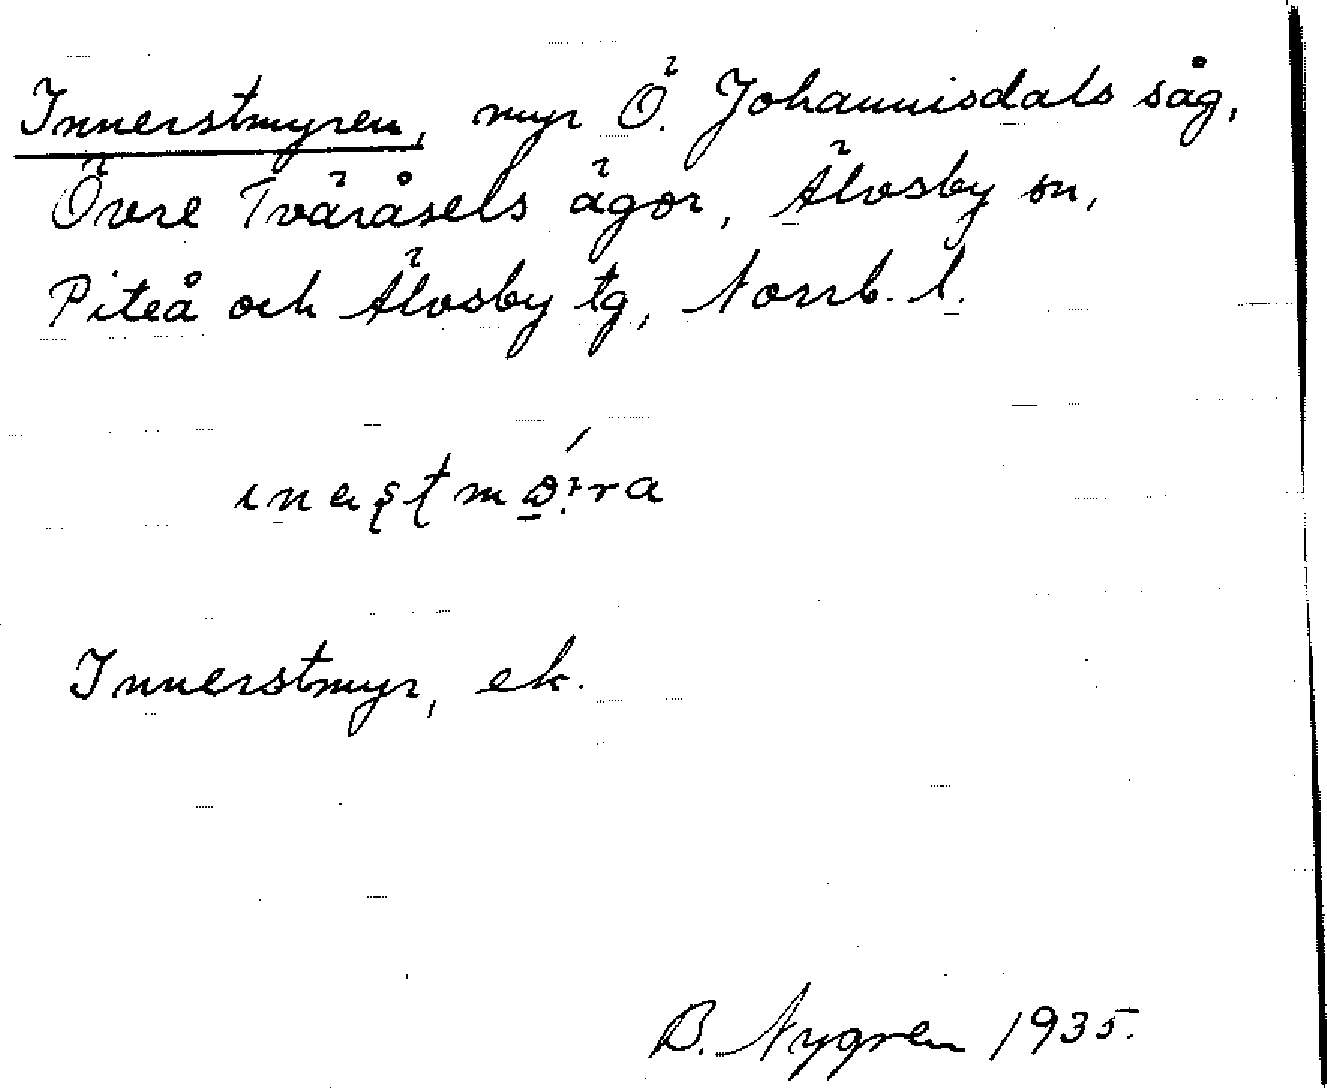 Innerstmyren, myr Ö. Johannisdals såg,
Övre Tväråsels ägor, Älvsby sn,
Piteå och Älvsby tg, Norrb. l.
Innerstmyr, ek.
B. Nygren 1935.